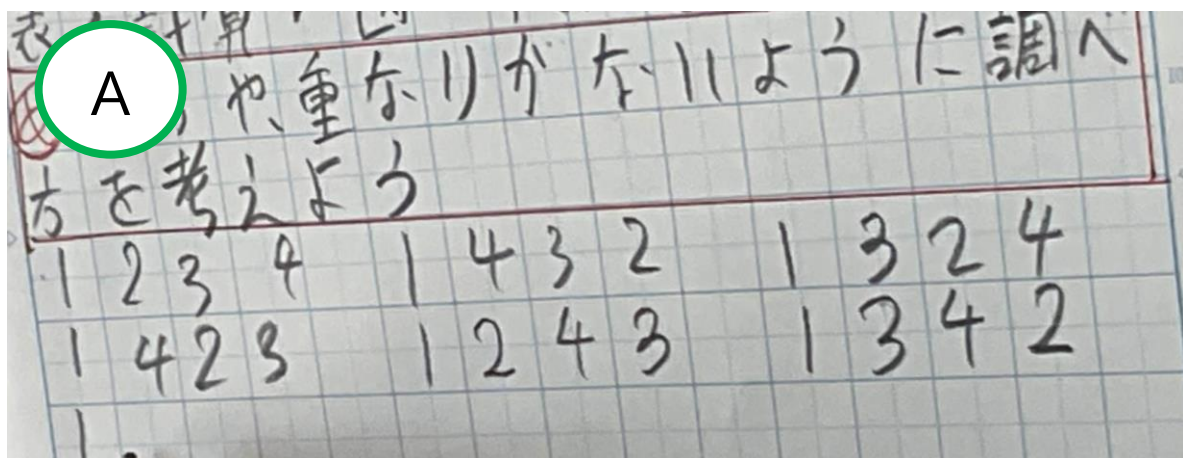 A
や、重なりがないように調べ
方を考えよう
1 2 3 4 1 4 3 2 1 3 2 4
1 4 2 3 1 2 4 3 1 3 4 2
1